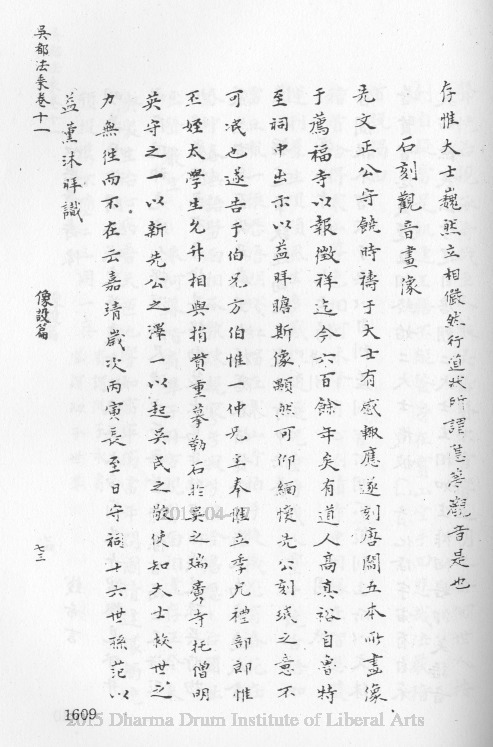 存惟大士巍然立相儼然行道此所謂舊菩觀音是也
石刻觀音畫像
先文正公守饒時禱于大士有感輒應遂刻唐閻五本所畫像
于薦福寺以報徵祥迄今六百餘年矣有道人高真裕自魯特
至祠中出示以益拜瞻斯像顯然可仰緬懷先公刻珉之意不
可泯也遂告于伯兄方伯惟一仲兄主奉惟立季兄禮部郎惟
丕姪太學生允升相與捐貲重摹勒石於吳之瑞廣寺托僧明
英守之一以新先公之澤一以起吳民之敬使知大士救世之
力無往而不在云嘉靖歲次丙寅長至日守祠十六世孫范以
益薰沐拜識
吳都法乘卷十一
像設篇
七三
1609
2015 Dharma Drum Institute of Liberal Arts